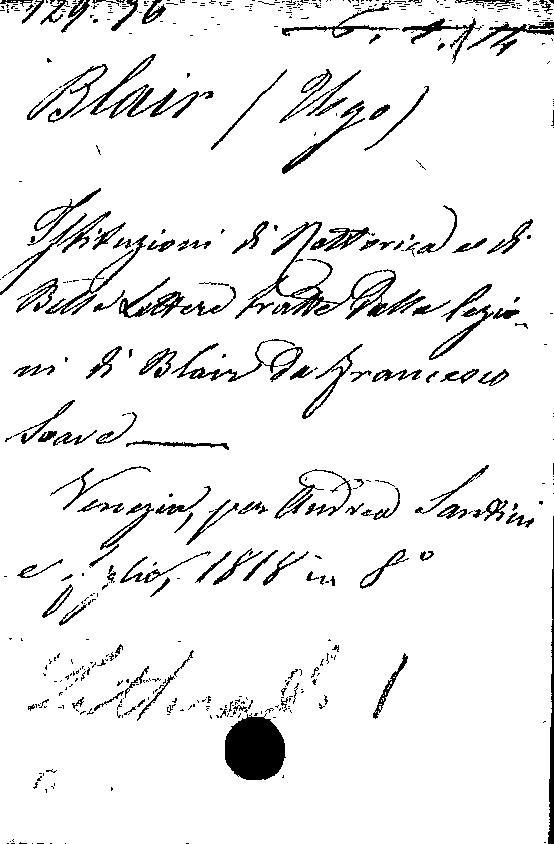 129. 76
6. 1. 14
Blair (Ugo)
Istituzioni di Rettorica e di
Belle Lettere tratte dalle lezio-
ni di Blair da Francesco
Soave
Venezia, per Andrea Santini
e figlio, 1818 in 8º
1